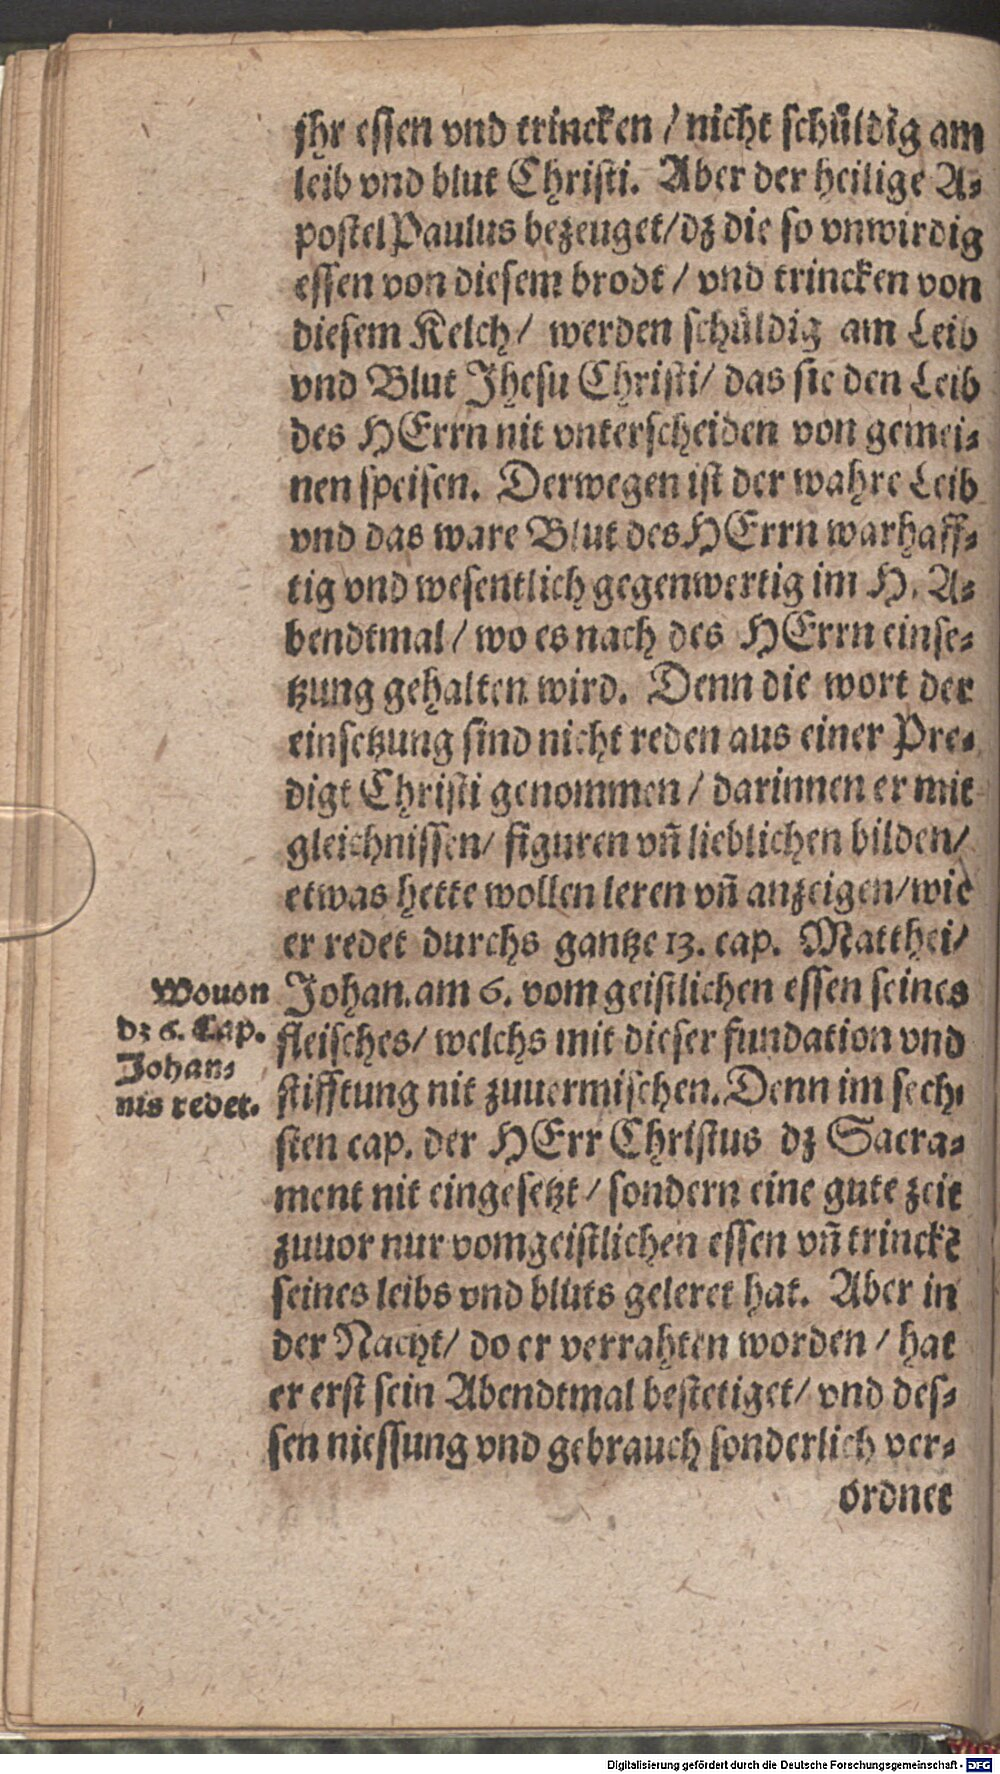 jhr essen vnd trincken / nicht schüldig am
leib vnd blut Christi. Aber der heilige A-
postel Paulus bezeuget/ dz die so vnwirdig
essen von diesem brodt / vnd trincken von
diesem Kelch/ werden schüldig am Leib
vnd Blut Jhesu Christi/ das sie den Leib
des HErrn nit vnterscheiden von gemei-
nen speisen. Derwegen ist der wahre Leib
vnd das ware Blut des HErrn warhaff-
tig vnd wesentlich gegenwertig im H. A-
bendtmal / wo es nach des HErrn einse-
tzung gehalten wird. Denn die wort der
einsetzung sind nicht reden aus einer Pre-
digt Christi genommen / darinnen er mit
gleichnissen/ figuren vñ lieblichen bilden/
etwas hette wollen leren vñ anzeigen/ wie
er redet durchs gantze 13. cap. Matthei/
Johan. am 6. vom geistlichen essen seines
fleisches/ welchs mit dieser fundation vnd
stifftung nit zuuermischen. Denn im sech-
sten cap. der HErr Christus dz Sacra-
ment nit eingesetzt / sondern eine gute zeit
zuuor nur vom geistlichen essen vñ trinckẽ
seines leibs vnd bluts geleret hat. Aber in
der Nacht/ do er verrahten worden / hat
er erst sein Abendtmal bestetiget/ vnd des-
sen niessung vnd gebrauch sonderlich ver-
ordnet
Wouon
dz 6. Cap.
Johan-
nis redet.
Digitalisierung gefördert durch die Deutsche Forschungsgemeinschaft - DFG